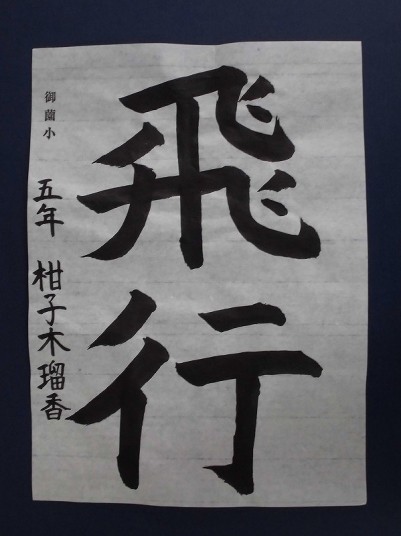 飛行
御薗小
五年 柑子木瑠香